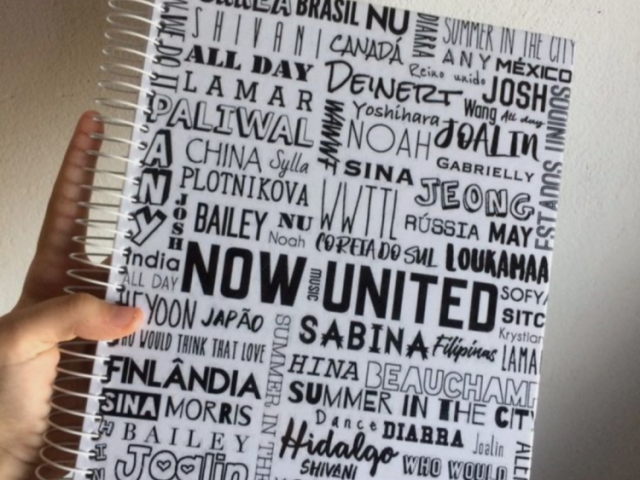 BRASIL NU
SHIVANI
CANADÁ
DIARRA
SUMMER IN THE CITY
ANY MÉXICO
ALL DAY
Reino unido
LAMAR
DEINERT
JOSH
Wang All day
PALIWAL
Yoshihara
WAWWF
NOAH
JOALIN
ESTADOS UNIDOS
ANY
CHINA Sylla
SINA
GABRIELLY
PLOTNIKOVA
WWTTL
JEONG
JOSH
BAILEY NU
RÚSSIA MAY
Noah
COREIA DO SUL
LOUKAMAA
India
ALL DAY
NOW UNITED
MUSIC
SOFYA
HEYOON JAPÃO
SITC
SABINA Filipinas
Krystian
WHO WOULD THINK THAT LOVE
LAMA
SUMMER IN THE
FINLÂNDIA
HINA BEAUCHAMP
SUMMER IN THE CITY
SINA MORRIS
Dance DIARRA Joalin
BAILEY
Hidalgo
Joalin
SHIVANI
WHO WOULD